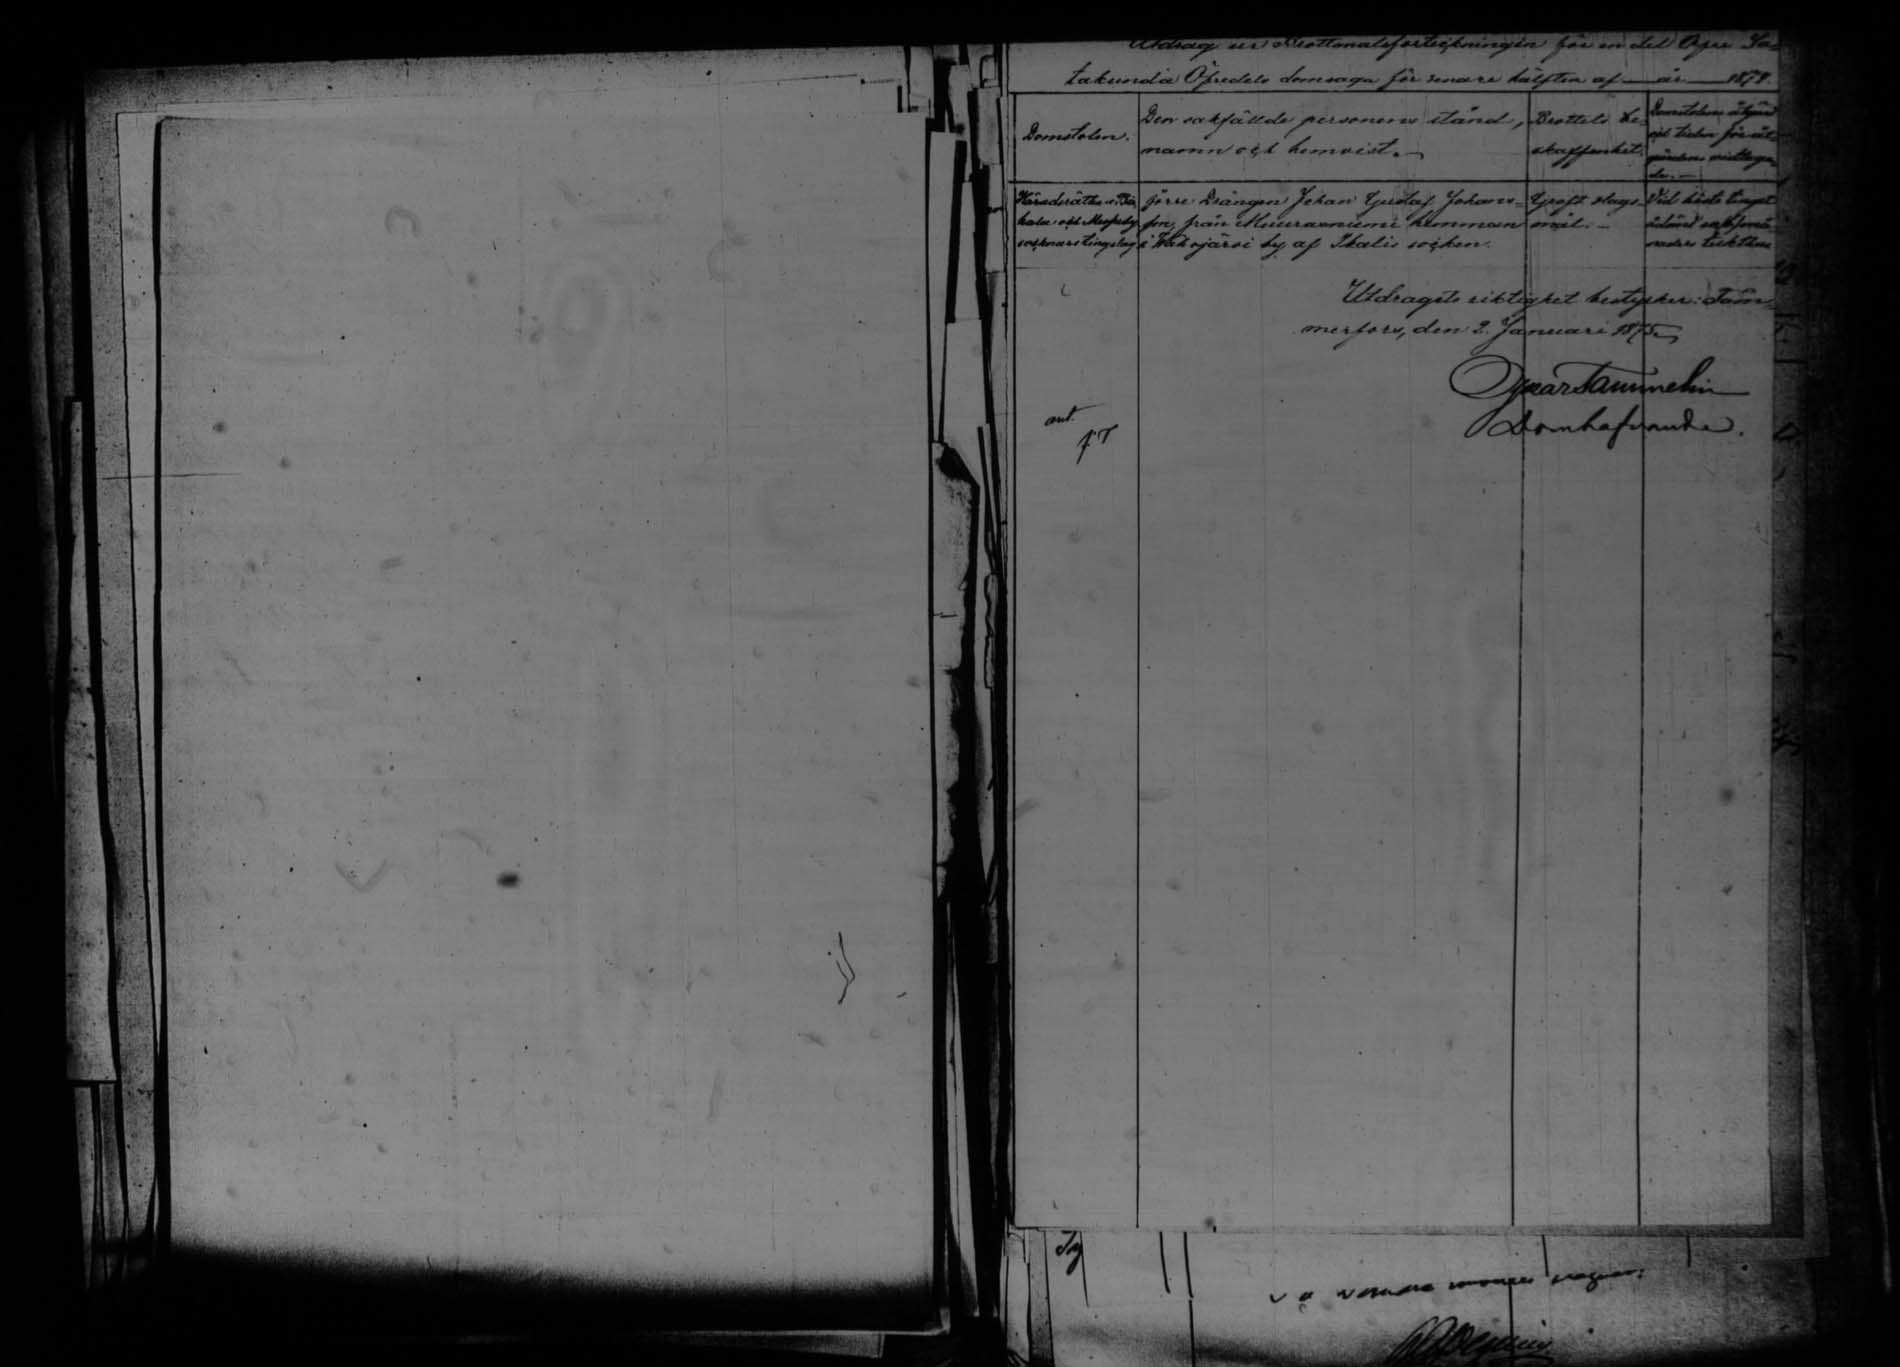 Utdrag ur Brottmålsförteckningen för en del Öfre Sa-
takunda Öfredels domsaga för senare hälften af år 1874.
Domstolen.
Den sakfällde personens stånd,
namn och hemvist.
Brottets be-
skaffenhet.
Domstolens åtgärd
och tiden för åt-
gärdens vidtagan-
de.
Häradsrätten i
kala och Messuby
socknars tingslag
förre Drängen Johan Gustaf Johans-
son från Muuraisniemi hemman
i Wahojärvi by af Ikalis socken.
Groft slags-
mål.
Vid höste tinget
ådömd
Utdragets riktighet bestyrker: Tam-
merfors, den 2 Januari 1875.
Ivar Tammelin
Domhafvande.
ant.
J.T